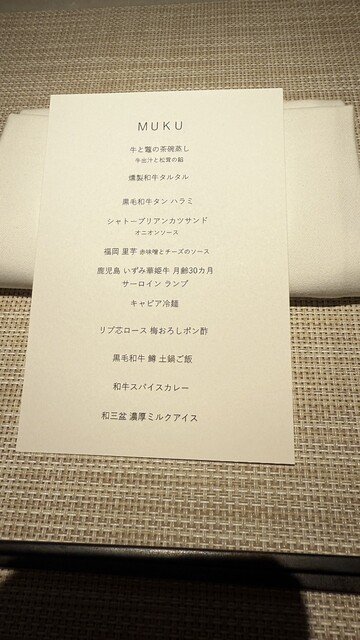 MUKU
牛と鼈の茶碗蒸し
牛出汁と松茸の餡
燻製和牛タルタル
黒毛和牛タン ハラミ
シャトーブリアンカツサンド
オニオンソース
福岡 里芋 赤味噌とチーズのソース
鹿児島 いずみ華姫牛 月齢30カ月
サーロイン ランプ
キャビア冷麺
リブ芯ロース 梅おろしポン酢
黒毛和牛 鱒 土鍋ご飯
和牛スパイスカレー
和三盆 濃厚ミルクアイス